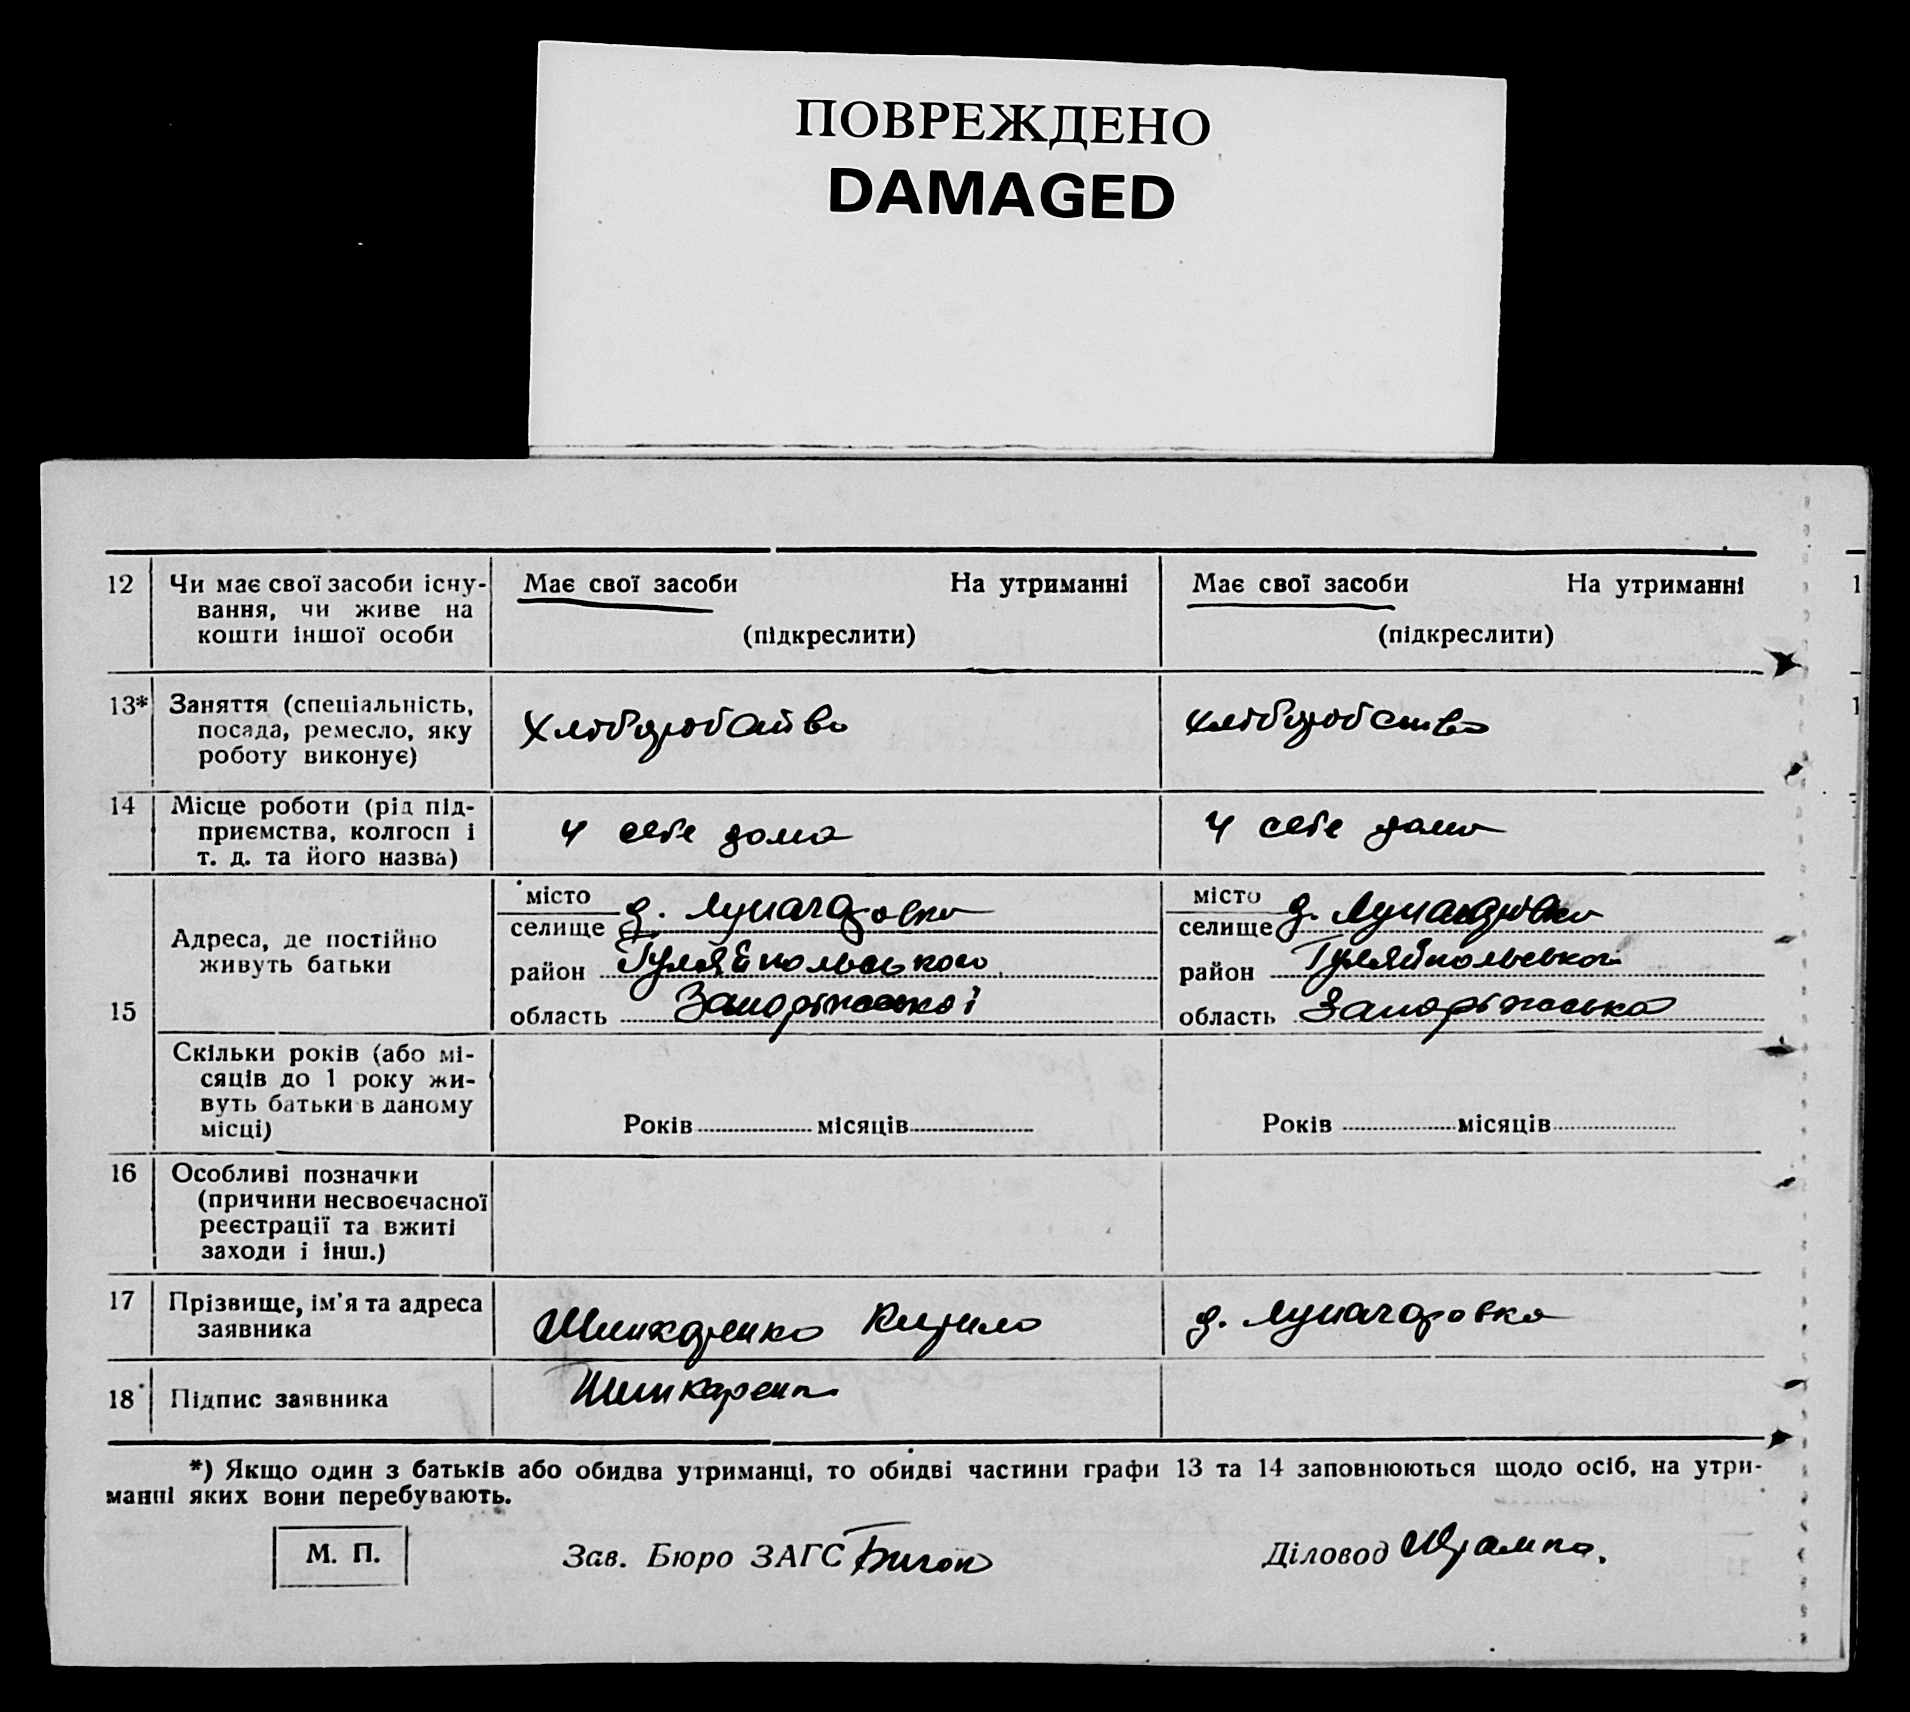 ПОВРЕЖДЕНО
DAMAGED
12 Чи має свої засоби існу- Має свої засоби На утриманні Має свої засоби На утриманні 1
вання, чи живе на
кошти іншої особи (підкреслити) (підкреслити)
13* Заняття (спеціальність, 1
посада, ремесло, яку Хліборобство хліборобство
роботу виконує)
14 Місце роботи (рід під-
приємства, колгосп і у себе дома у себе дома
т. д. та його назва)
місто місто
селище д. Луначаровка селище д. Луначаровка
Адреса, де постійно
живуть батьки район Гуляйпольського район Гуляйпольського
15 область Запоріжської область Запоріжська
Скільки років (або мі-
сяців до 1 року жи-
вуть батьки в даному
місці) Років місяців Років місяців
16 Особливі позначки
(причини несвоєчасної
реєстрації та вжиті
заходи і інш.)
17 Прізвище, ім'я та адреса
заявника Шинкаренко Кирило д. Луначаровка
18 Підпис заявника
*) Якщо один з батьків або обидва утриманці, то обидві частини графи 13 та 14 заповнюються щодо осіб, на утри-
манні яких вони перебувають.
М. П. Зав. Бюро ЗАГС Діловод